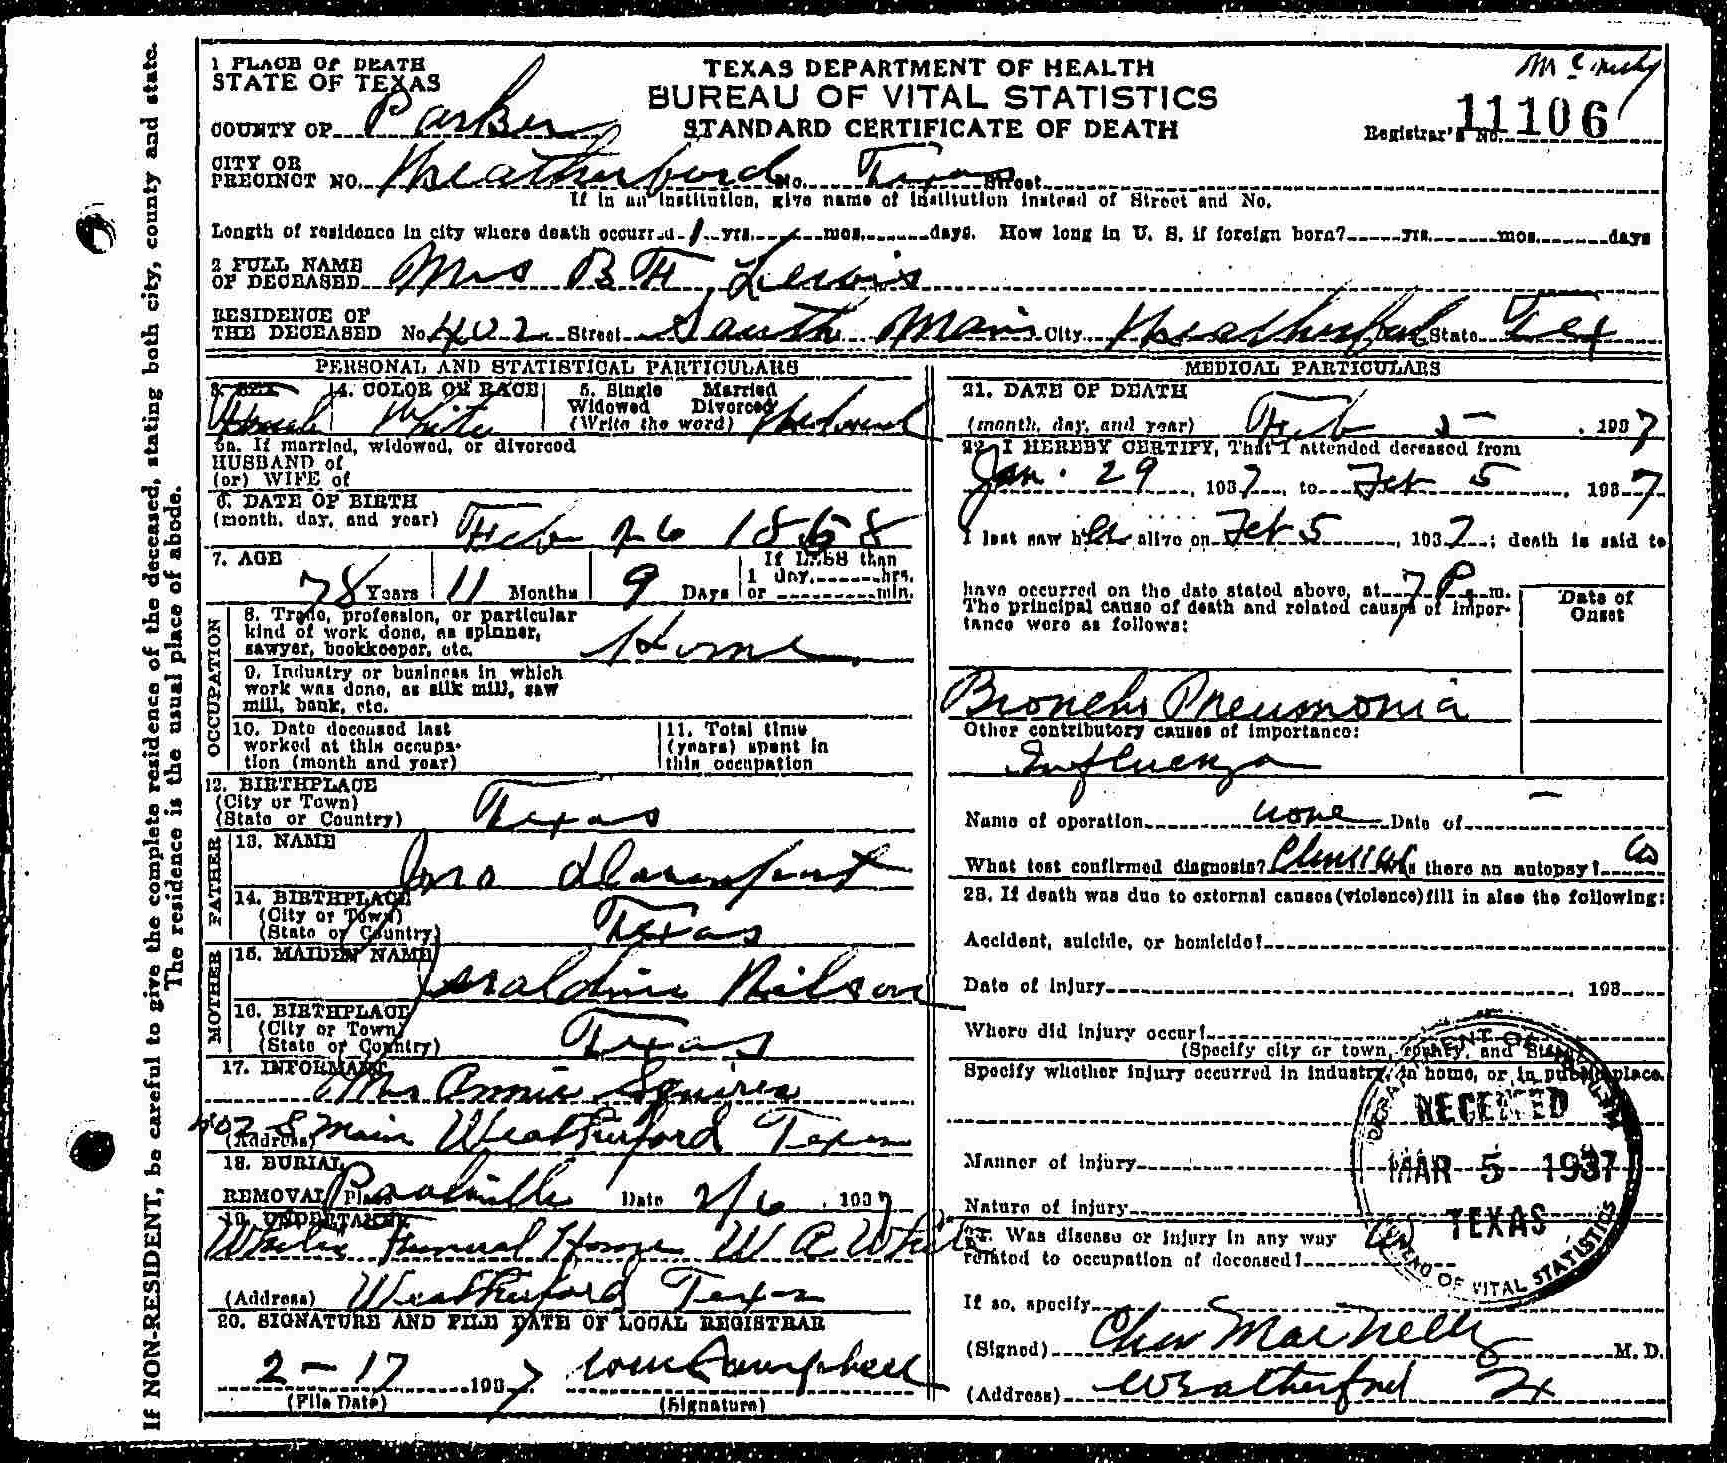 If NON-RESIDENT, be careful to give the complete residence of the deceased, stating both city, county and state.
The residence is the usual place of abode.
1 PLACE OF DEATH
STATE OF TEXAS
COUNTY OF Parker
TEXAS DEPARTMENT OF HEALTH
BUREAU OF VITAL STATISTICS
STANDARD CERTIFICATE OF DEATH
Registrar's No. 11106
CITY OR
PRECINCT NO. Weatherford No. Texas Street
If in an institution, give name of institution instead of Street and No.
Length of residence in city where death occurred 1 yrs. mos. days. How long in U. S. if foreign born? yrs. mos. days
2 FULL NAME
OF DECEASED Mrs B F Lewis
RESIDENCE OF
THE DECEASED No. 402 Street South Main City Weatherford State Tex
PERSONAL AND STATISTICAL PARTICULARS
3. SEX 4. COLOR OR RACE 5. Single Married
Widowed Divorced
(Write the word)
Female White Widowed
5a. If married, widowed, or divorced
HUSBAND of
(or) WIFE of
6. DATE OF BIRTH
(month, day, and year) Feb 26 1858
7. AGE
78 Years 11 Months 9 Days If LESS than
1 day, hrs.
or min.
OCCUPATION
8. Trade, profession, or particular
kind of work done, as spinner,
sawyer, bookkeeper, etc. Home
9. Industry or business in which
work was done, as silk mill, saw
mill, bank, etc.
10. Date deceased last
worked at this occupa-
tion (month and year)
11. Total time
(years) spent in
this occupation
12. BIRTHPLACE
(City or Town)
(State or Country) Texas
FATHER
13. NAME Davenport
14. BIRTHPLACE
(City or Town)
(State or Country) Texas
MOTHER
15. MAIDEN NAME Geraldine
16. BIRTHPLACE
(City or Town)
(State or Country) Texas
17. INFORMANT
Mrs Annie Squires
402 S Main Weatherford Texas
(Address)
18. BURIAL
REMOVAL Place Poolville Date 2/6, 1937
19. UNDERTAKER
White's Funeral Home W R White
(Address) Weatherford Texas
20. SIGNATURE AND FILE DATE OF LOCAL REGISTRAR
2-17 1937 Campbell
(File Date) (Signature)
MEDICAL PARTICULARS
21. DATE OF DEATH
(month, day, and year) Feb 5, 1937
22. I HEREBY CERTIFY, That I attended deceased from
Jan. 29, 1937, to Feb 5, 1937
I last saw her alive on Feb 5, 1937; death is said to
have occurred on the date stated above, at 7 P. m.
The principal cause of death and related causes of impor-
tance were as follows:
Date of
Onset
Broncho Pneumonia
Other contributory causes of importance:
Influenza
Name of operation none Date of
What test confirmed diagnosis? Clinical Was there an autopsy?
23. If death was due to external causes (violence) fill in also the following:
Accident, suicide, or homicide?
Date of injury , 193
Where did injury occur?
(Specify city or town, county, and State)
Specify whether injury occurred in industry, in home, or in public place.
Manner of injury
Nature of injury
24. Was disease or injury in any way
related to occupation of deceased?
If so, specify
(Signed) Chas MacNelly M. D.
(Address) Weatherford Tx
DEPARTMENT OF HEALTH
RECEIVED
MAR 5 1937
TEXAS
BUREAU OF VITAL STATISTICS